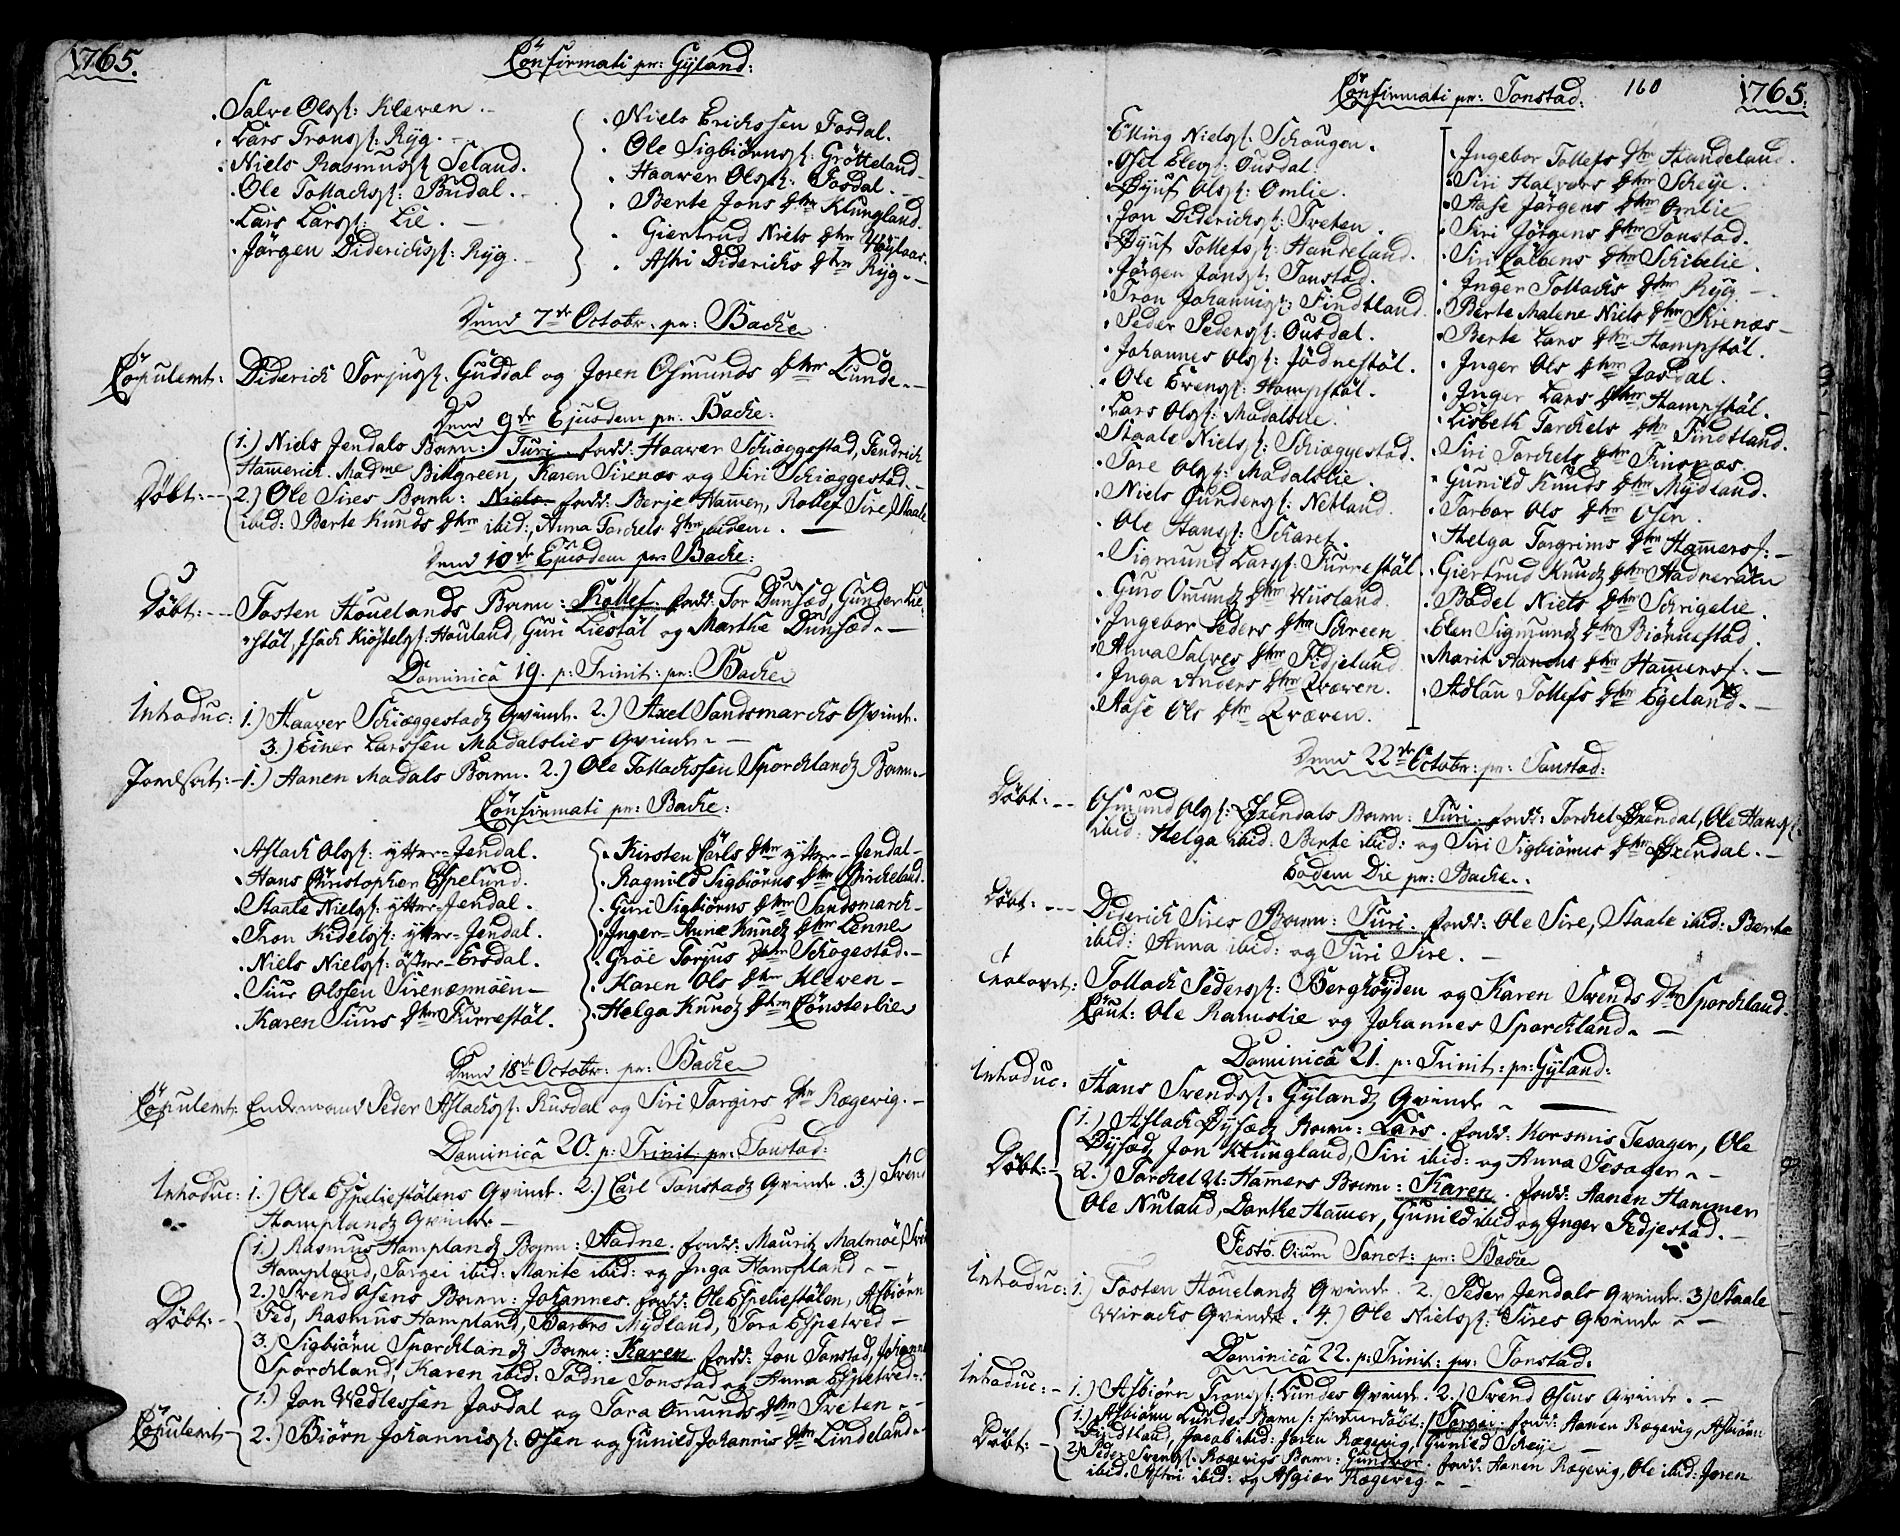 1765.
Confirmati pr: Gyland:
Salve Olss: Kleven.
Lars Tronss: Ryg.
Niels Rasmuss Seland.
Ole Tollachss: Budal.
Lars Larss: Lie.
Jørgen Diderichss: Ryg.
Niels Erichssen Josdal.
Ole Sigbiørnss: Grøtteland
Haaver Olss: Josdal.
Berte Jons Dtr Klungland.
Giertrud Niels Dtr Høylaas.
Astri Diderichs Dtr Ryg.
Dend 7de Octobr: pr: Backe
Copulemt: Diderich Torjuss: Guddal og Joren Osmunds Dtr Lunde.
Dend 9de Ejusdem pr: Backe:
Døbt: 1.) Niels Jendals Barn: Turi. fadd: Haaver Schiæggestad, Fendrich
Hamerich. Madme Billgreen, Karen Sirenæs og Siri Schiæggestad.
2.) Ole Sires Barn: Niels. fadd: Berje Hamer, Rollef Sire, Staale
ibid: Berte Knuds Dtr ibid:, Anna Torchels Dtr ibidem.
Dend 10de Ejusdem pr: Backe:
Døbt: Tosten Houelands Barn: Rollef. fadd: Tor Dunsæd, Gunder Lie-
støl, Isach Kiøstelss: Houland, Guri Liestøl og Marthe Dunsæd.
Dominica 19. p: Trinit: pr: Backe
Introduc: 1.) Haaver Schiæggestadz Qvinde. 2.) Axel Sandsmarchs Qvinde.
3.) Einer Larssen Madalslies Qvinde.
Jordfæst: 1.) Aanen Madals Barn. 2.) Ole Tollachssen Sporchlandz Barn.
Confirmati pr: Backe:
Aslach Olss: yttre-Jendal.
Hans Christopher Espelund.
Staale Nielss: yttre-Jendal.
Tron Kidelss: yttre-Jendal.
Niels Nielss: østre-Ersdal.
Siur Olssen Sirenæsmoen
Karen Siurs Dtr Furrestøl.
Kirsten Carls Dtr yttre-Jendal
Ragnild Sigbiørns Dtr Birckeland.
Guri Sigbiørns Dtr Sandsmarch
Inger-Kune Knudz Dtr Lenne
Groe Torjus Dtr Schogestad.
Karen Ols Dtr Kleven
Helga Knudz Dtr Consterlie
Dend 18de Octobr: pr: Backe
Copulemt: Enckemand Peder Aslachss: Rusdal og Siri Torgirs Dtr Rægevig.
Dominica 20. p: Trinit: pr: Tonstad:
Introduc: 1.) Ole Espeliestølens Qvinde. 2.) Carl Tonstadz Qvinde. 3.) Svend
Hamplandz Qvinde
Døbt: 1.) Rasmus Hamplandz Barn: Aadne. fadd: Mauritz Malmøe,
Hampland, Torgei ibid: Marite ibid: og Inga Hampland
2.) Svend Osens Barn: Johannes. fadd: Ole Espeliestølen, Asbiørn
Fed, Rasmus Hampland, Barbro Mydland, Tora Espetved
3.) Sigbiørn Sporchlandz Barn: Karen fadd: Jon Tonstad, Johannes
Sporchland, Karen ibid: Todne Tonstad og Anna Espetved
Copulemt 1.) Jon Vedlessen Josdal og Tora Omunds Dtr Treten
2.) Biørn Johanniss: Osen og Gunild Johannis Dtr Lindeland
Confirmati pr: Tonstad: 160 1765:
Elling Nielss: Schougen.
Osul Elevs: Ousdal.
Øyuf Olss: Omlie.
Jon Diderichss: Treten.
Øyuf Tollefss: Handeland.
Jørgen Jonss: Tonstad.
Tron Johanniss: Findtland.
Peder Pederss: Ousdal.
Johannes Olss: Jødnestøl.
Ole Svenss: Hompstøl.
Lars Olss: Madalslie.
Staale Nielss: Schiæggestad.
Tore Olss: Madalslie.
Niels Gunderss: Netland.
Ole Hanss: Scharet.
Sigmund Larss: Furrestøl
Guro Omundz Dtr Wiisland
Ingebor Peders Dtr Schreen
Anna Salves Dtr Fidjelund
Inga Anders Dtr Qværen.
Aase Ols Dtr Qværen.
Ingebor Tollefs Dtr Handeland.
Siri Halvors Dtr Scheye.
Aase Jørgens Dtr Omlie
Siri Jørgens Dtr Tonstad.
Siri Colbens Dtr Schibelie.
Inger Tollachs Dtr Ryg
Berte Malene Niels Dtr Sirenæs
Berte Lars Dtr Hompstøl.
Inger Ols Dtr Josdal.
Inger Lars Dtr Hompstøl.
Lisbeth Torchels Dtr Findtland.
Siri Torchels Dtr Finsnæs.
Gunild Knuds Dtr Mydland.
Torbor Ols Dtr Osen.
Helga Torgrims Dtr Hamers:
Giertrud Knudz Dtr Hadneraan
Bodel Niels Dtr Schrigelie.
Elen Sigmundz Dtr Biørnestad.
Marit Aanens Dtr Hamers:
Adlau Tollefs Dtr Egeland.
Dend 22de Octobr: pr: Tonstad:
Døbt: Osmund Olss: Øxendals Barn: Turi. fadd: Torchel Øxendal, Ole Hanss
ibid: Helga ibid. Berte ibid: og Siri Sigbiørns Dtr Øxendal.
Eodem Die pr: Backe.
Døbt: Diderich Sires Barn: Turi. fadd: Ole Sire, Staale ibid: Berte
ibid: Anna ibid: og Turi Sire.
Trolovet: Tollach Pederss: Berghøyden og Karen Svends Dtr Sporchland.
Caut: Ole Ramslie og Johannes Sporchland.
Dominica 21. p: Trinit: pr: Gyland:
Introduc: Hans Svendss: Gylandz Qvinde
Døbt: 1.) Aslach Dysædz Barn: Lars. fadd: Korsmis Tesager, Ole
Dysæd, Jon Klungland, Siri ibid: og Anna Tesager
2.) Torchel Hamers Barn: Karen. fadd: Aanen Hammer
Ole Nuland, Dorthe Hamer, Gunild ibid og Inger Fedjestad.
Festo Oium Sanct: pr: Backe
Introduc: 1.) Tosten Houelandz Qvinde. 2. Peder Jendals Qvinde. 3) Staale
Wirachs Qvinde. 4.) Ole Nielss: Sires Qvinde
Dominica 22. p: Trinit: pr: Tonstad:
Introduc: 1.) Asbiørn Tronss: Lundes Qvinde. 2.) Svend Osens Qvinde.
Døbt: 1.) Asbiørn Lundes Barn /: hiemmedøbt: / Torgei. fadd: Aanen Rægevig, Asbiørn
Findtland, Jacob ibid: Joren Rægevig, Gunild Scheye
2.) Peder Svenss: Rægevigs Barn: Gundvor. fadd: Aanen Rægevig, Ole ibid: Joren
ibid. Astri ibid: og Asgier Rægevig